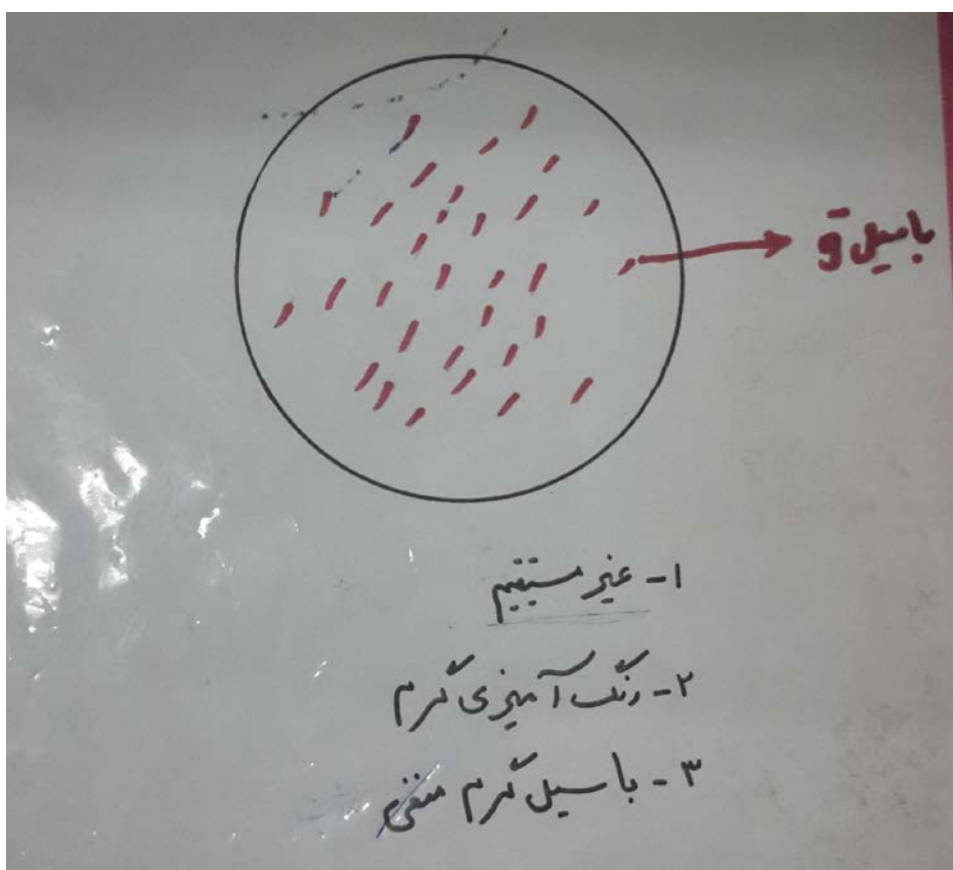 باسیل ḡ
۱- غیر مستقیم
۲- رنگ آمیزی گرم
۳- باسیل گرم منفی